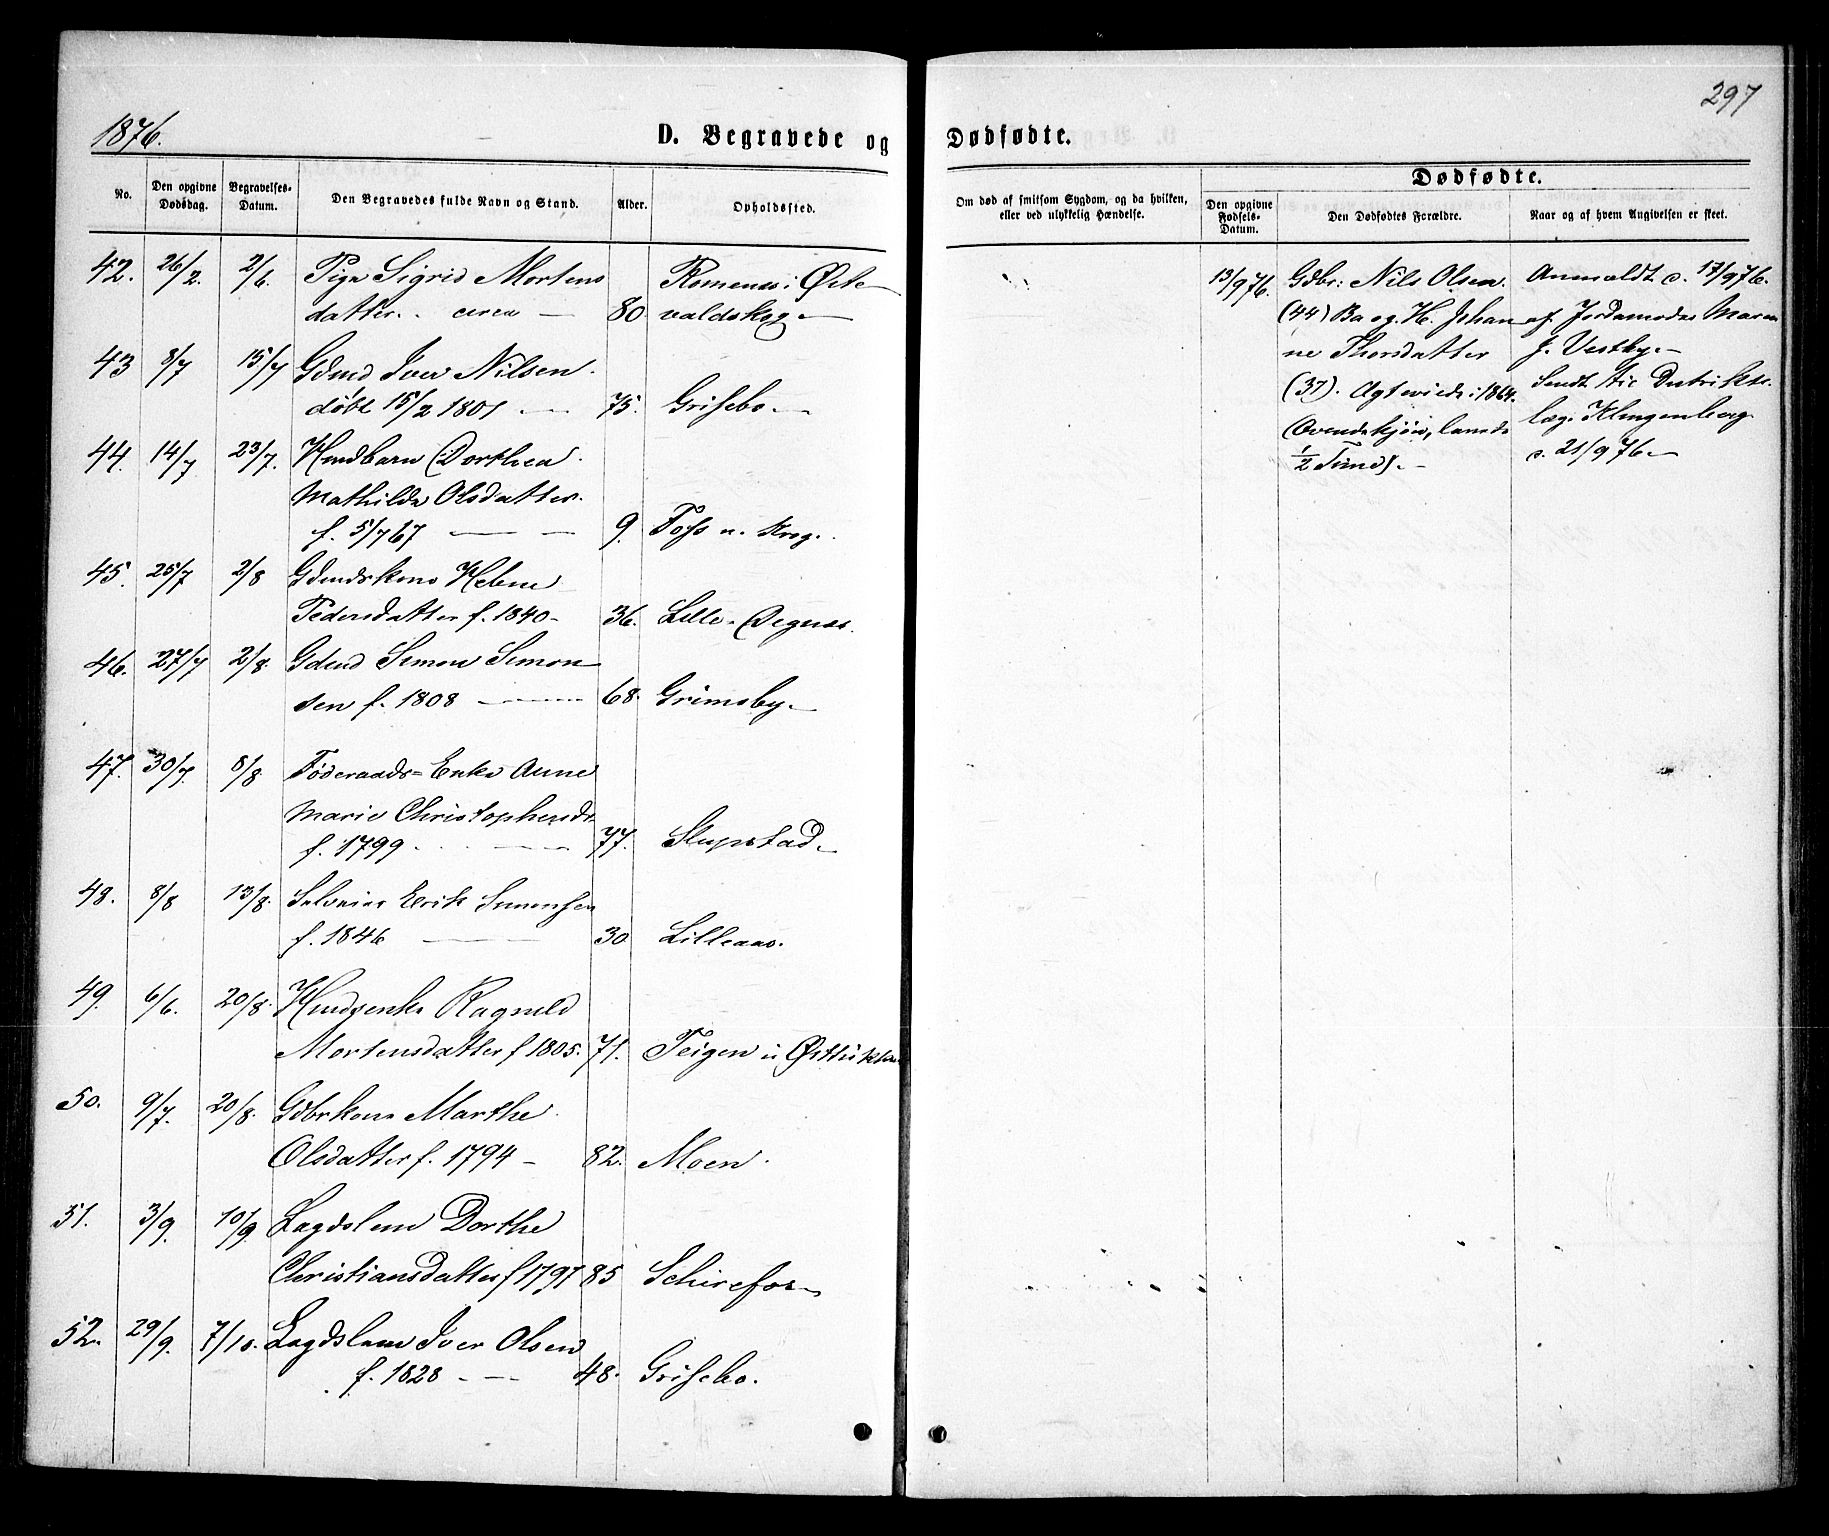 297
1876.
D. Begravede og Dødfødte.
No.
Den opgivne Dødsdag.
Begravelses-Datum.
Den Begravedes fulde Navn og Stand.
Alder.
Opholdssted.
Om død af smitsom Sygdom, og da hvilken, eller ved ulykkelig Hændelse.
Dødfødte.
Den opgivne Fødsels-Datum.
Den Dødfødtes Forældre.
Naar og af hvem Angivelsen er skeet.
42. 26/2. 2/6. Pige Sigrid Mortens
datter. circa — 80 valdskog —
43 8/7 15/7 Gdmd Iver Nilsen
døbt 15/2 1801 — 75. Grisebo —
44. 14/7 23/7. Hmdbarn Dorthea
Mathilde Olsdatter.
f. 5/7 67 — — 9. Foss u. Krog.
45. 25/7 2/8 Gdmdskone Helene
Pedersdatter f. 1840 - 36. Lille-Degnes.
46. 27/7 2/8. Gdmd Simon Simon
sen f. 1808 — 68. Grimsby. —
47. 30/7. 8/8 Føderaads-Enke Anne
Marie Christophersdr
f. 1799 — 77. Slupstad —
48. 8/8 13/8. Selveier Erik Simensen
f. 1846 — 30 Lilleaas.
49. 6/6. 20/8. Hmdsenke Ragnild
Mortensdatter f 1805. 71. Teigen u
50. 9/7. 20/8. Gdbrkone Marthe
Olsdatter f. 1794 - 82. Moen.
51. 3/9. 10/9. Lægdslem Dorthe
Christiansdatter f 1797 85
52. 29/9. 7/10. Lægdslem Iver Olsen
f. 1828 - — 48. Grisebo.
13/9 76. Gdbr: Nils Olsen. Anmeldt d. 17/9 76.
(44) Ba og H. Johan af Jordemoder Maren
ne Thorsdatter J. Vestby. —
(37). Ægteviede: 1864. Sendt til Distrikts
læge Klingenberg
1/2 d. 21/9 76 —